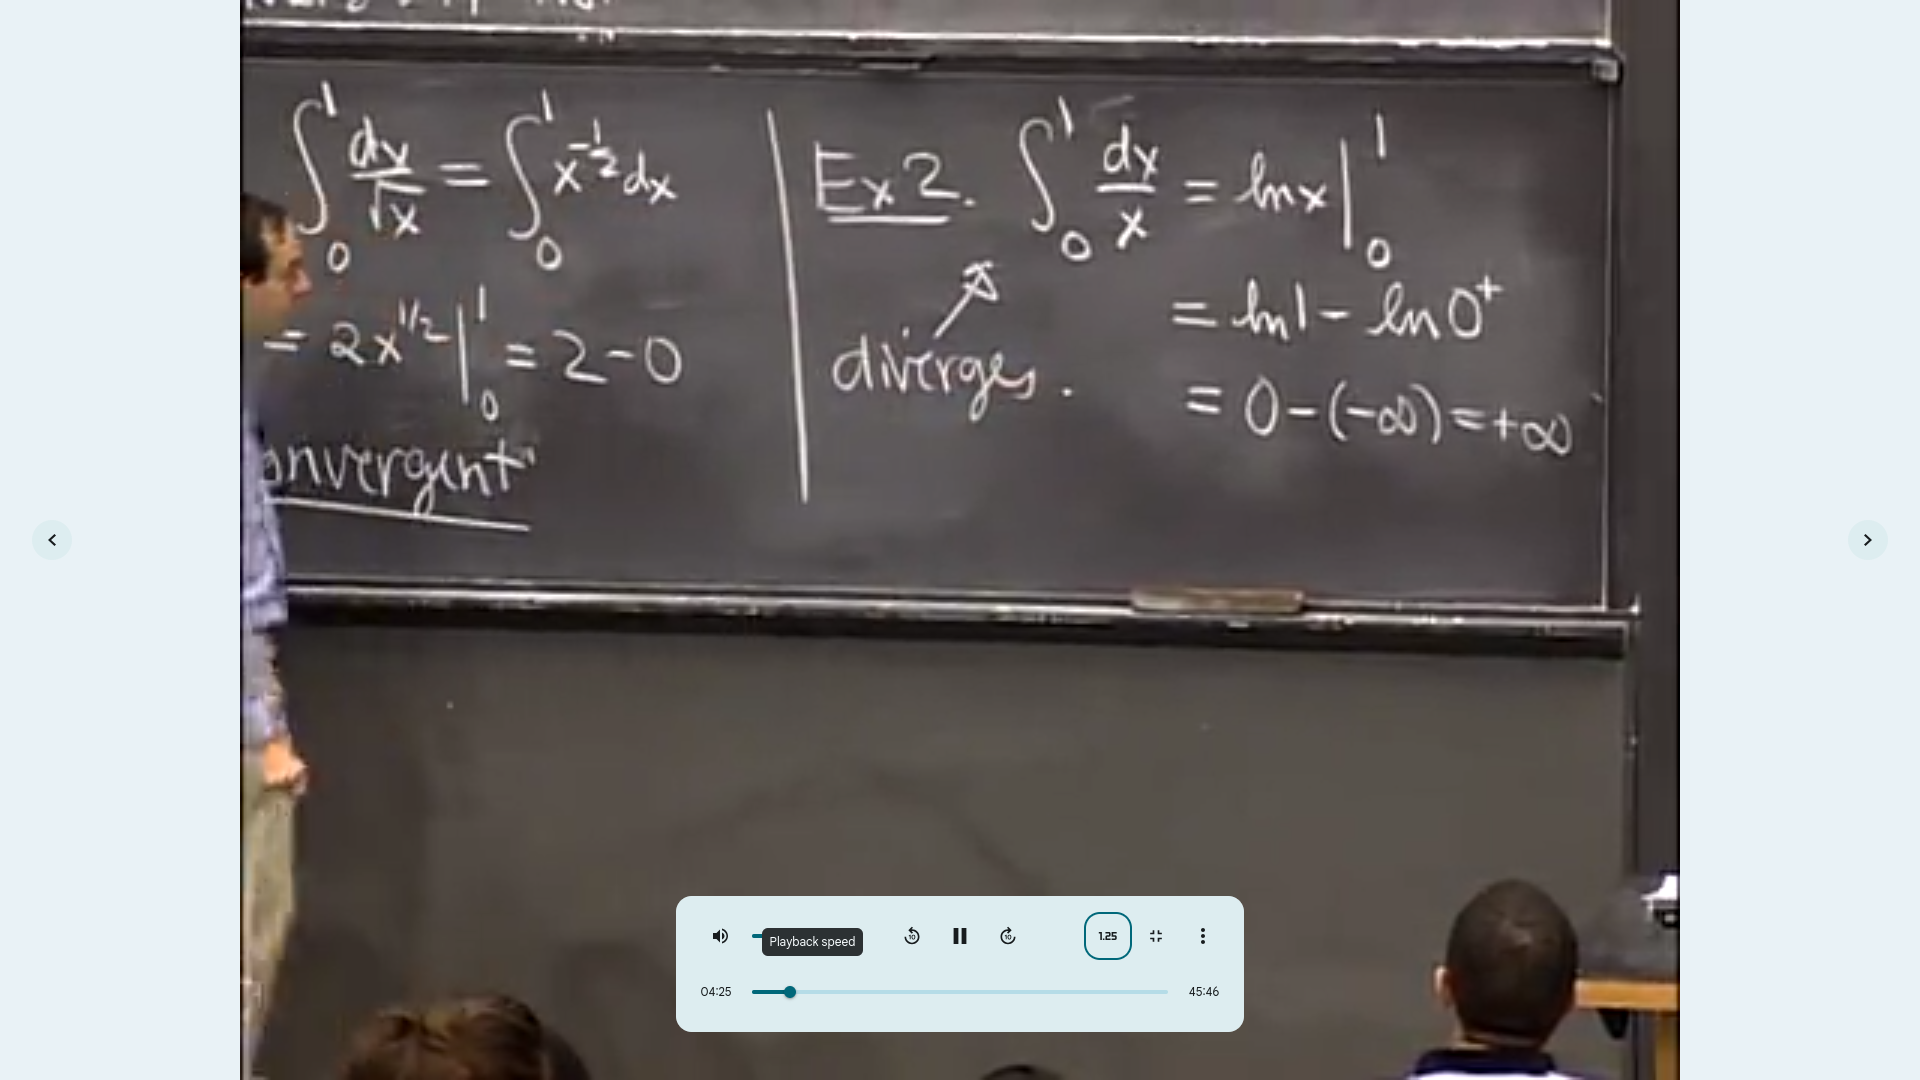 ∫₀¹ dx/√x = ∫₀¹ x^(-1/2) dx
= 2x^(1/2) |₀¹ = 2 - 0
onvergent"
Ex 2. ∫₀¹ dx/x = ln x |₀¹
= ln 1 - ln 0⁺
diverges.
= 0 - (-∞) = +∞
Playback speed
10
10
1.25
04:25
45:46